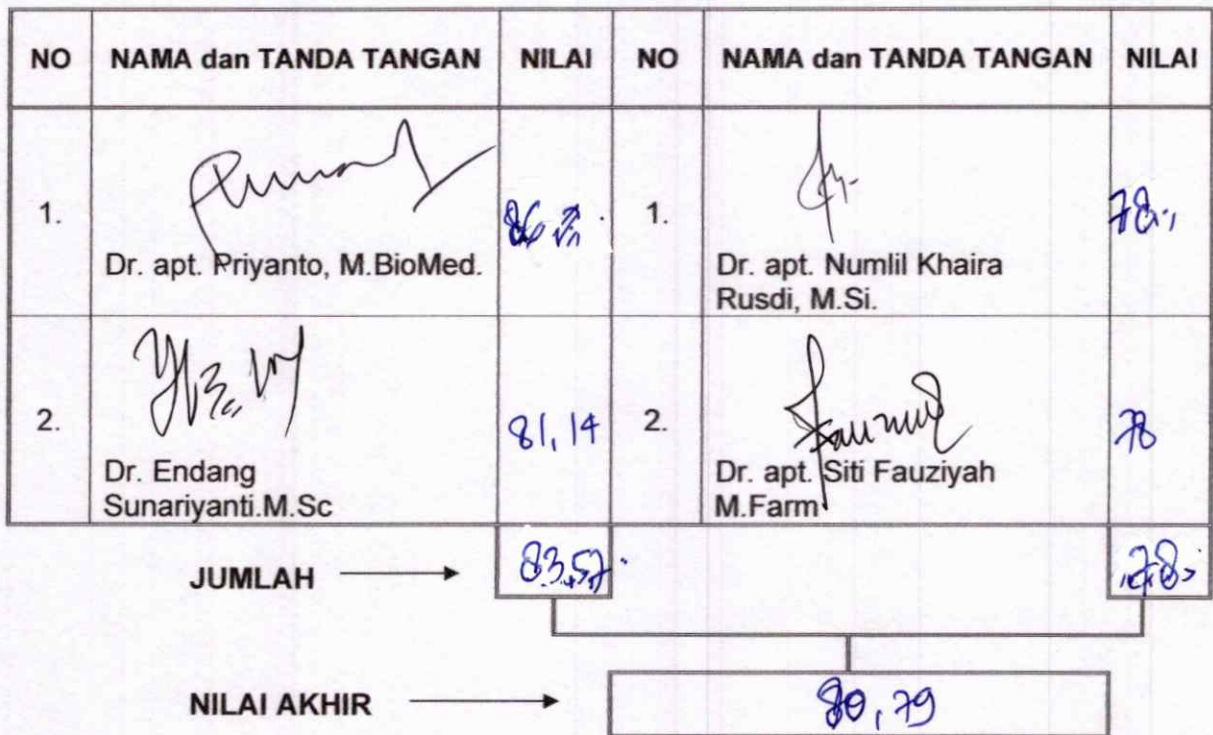 NO NAMA dan TANDA TANGAN NILAI NO NAMA dan TANDA TANGAN NILAI
1. 1. 78
Dr. apt. Priyanto, M.BioMed.
Dr. apt. Numlil Khaira
Rusdi, M.Si.
2. 81,14 2. 78
Dr. Endang
Sunariyanti.M.Sc
Dr. apt. Siti Fauziyah
M.Farm
JUMLAH 83,57 78
NILAI AKHIR 80,79